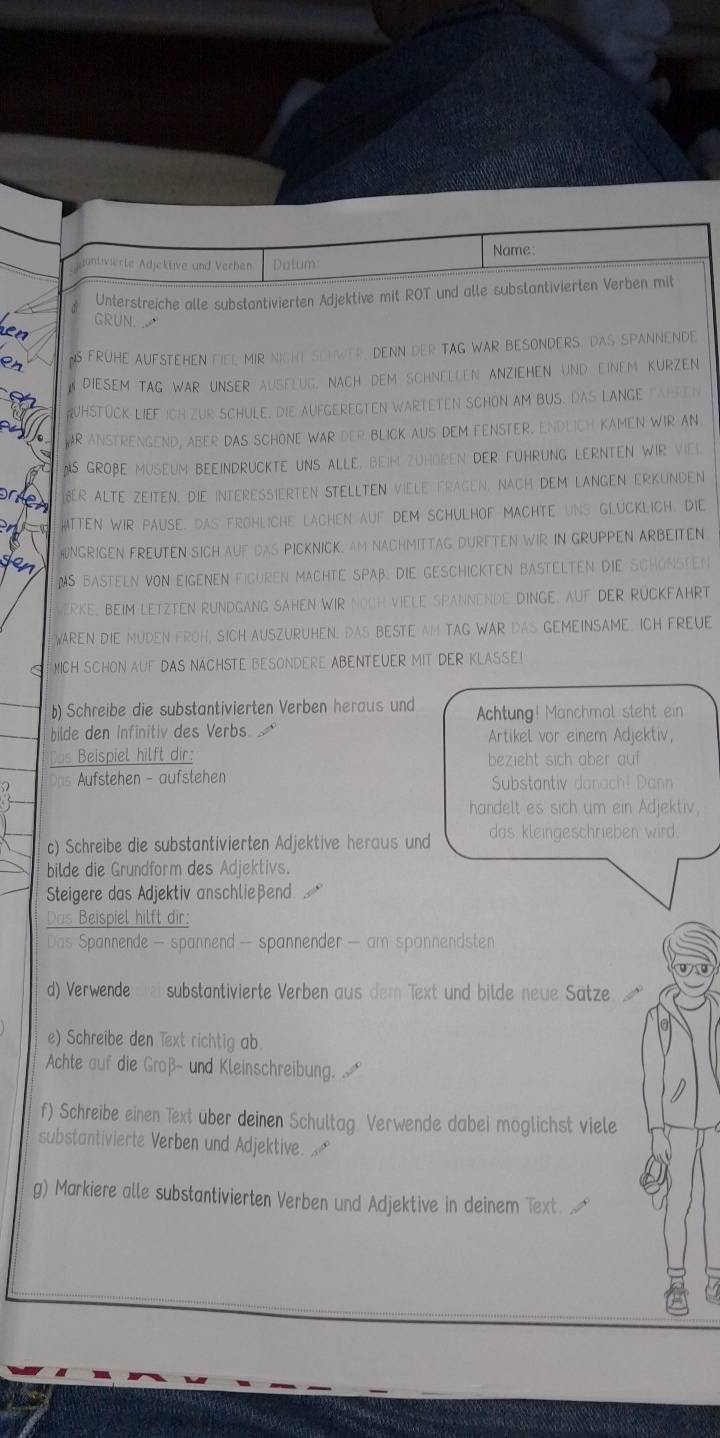 Adjektive und Verben
Datum:
Name:
Unterstreiche alle substantivierten Adjektive mit ROT und alle substantivierten Verben mit
GRÜN.
DAS FRÜHE AUFSTEHEN FIEL MIR NICHT SCHWER, DENN DER TAG WAR BESONDERS. DAS SPANNENDE
AN DIESEM TAG WAR UNSER AUSFLUG. NACH DEM SCHNELLEN ANZIEHEN UND EINEM KURZEN
FRÜHSTÜCK LIEF ICH ZUR SCHULE. DIE AUFGEREGTEN WARTETEN SCHON AM BUS. DAS LANGE FAHREN
WAR ANSTRENGEND, ABER DAS SCHÖNE WAR DER BLICK AUS DEM FENSTER. ENDLICH KAMEN WIR AN.
DAS GROßE MUSEUM BEEINDRUCKTE UNS ALLE. BEIM ZUHÖREN DER FÜHRUNG LERNTEN WIR VIEL
ÜBER ALTE ZEITEN. DIE INTERESSIERTEN STELLTEN VIELE FRAGEN. NACH DEM LANGEN ERKUNDEN
HATTEN WIR PAUSE. DAS FRÖHLICHE LACHEN AUF DEM SCHULHOF MACHTE UNS GLÜCKLICH. DIE
HUNGRIGEN FREUTEN SICH AUF DAS PICKNICK. AM NACHMITTAG DURFTEN WIR IN GRUPPEN ARBEITEN.
DAS BASTELN VON EIGENEN FIGUREN MACHTE SPAß. DIE GESCHICKTEN BASTELTEN DIE SCHÖNSTEN
WERKE. BEIM LETZTEN RUNDGANG SAHEN WIR NOCH VIELE SPANNENDE DINGE. AUF DER RÜCKFAHRT
WAREN DIE MÜDEN FROH, SICH AUSZURUHEN. DAS BESTE AM TAG WAR DAS GEMEINSAME. ICH FREUE
MICH SCHON AUF DAS NÄCHSTE BESONDERE ABENTEUER MIT DER KLASSE!
b) Schreibe die substantivierten Verben heraus und
bilde den Infinitiv des Verbs.
Das Beispiel hilft dir:
Das Aufstehen - aufstehen
Achtung! Manchmal steht ein
Artikel vor einem Adjektiv,
bezieht sich aber auf
Substantiv danach! Dann
handelt es sich um ein Adjektiv,
das kleingeschrieben wird.
c) Schreibe die substantivierten Adjektive heraus und
bilde die Grundform des Adjektivs.
Steigere das Adjektiv anschließend.
Das Beispiel hilft dir:
Das Spannende – spannend – spannender – am spannendsten
d) Verwende substantivierte Verben aus dem Text und bilde neue Sätze.
e) Schreibe den Text richtig ab.
Achte auf die Groß- und Kleinschreibung.
f) Schreibe einen Text über deinen Schultag. Verwende dabei möglichst viele
substantivierte Verben und Adjektive.
g) Markiere alle substantivierten Verben und Adjektive in deinem Text.